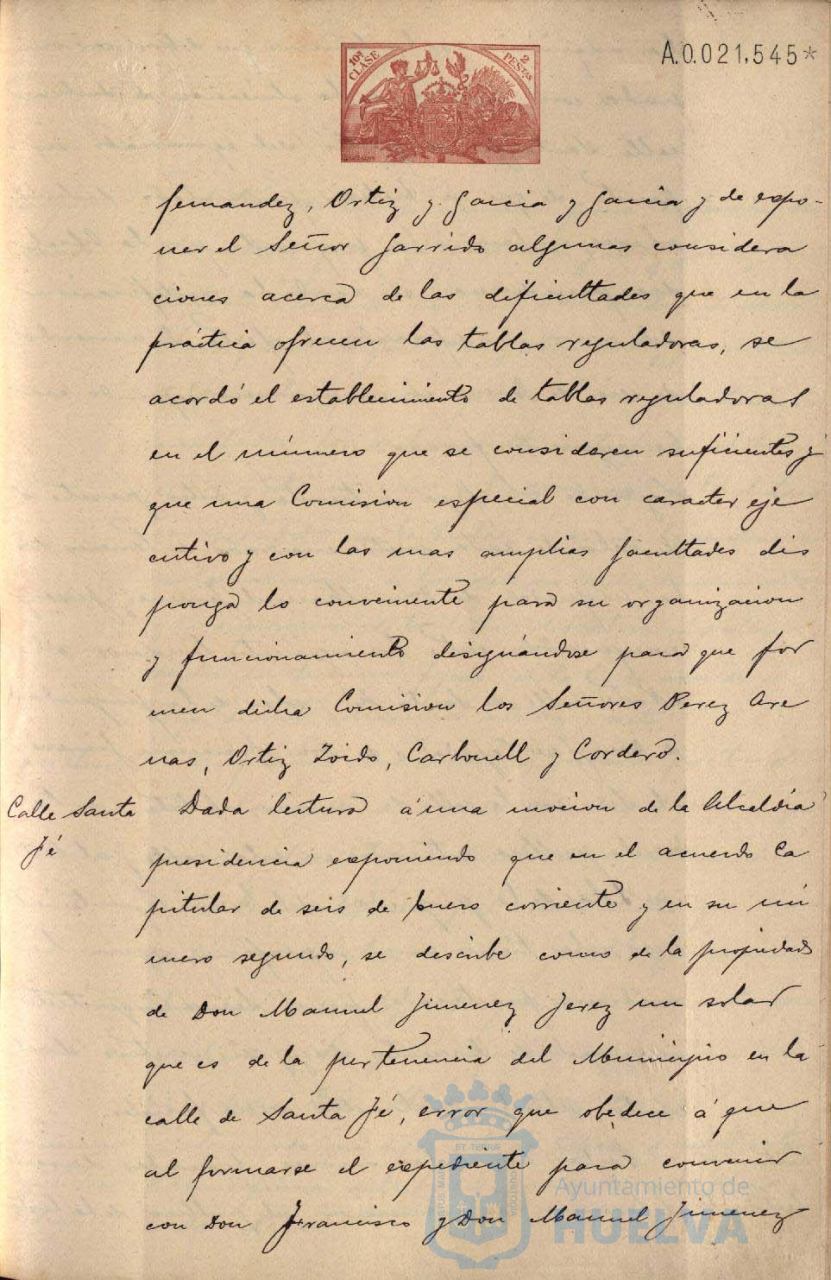 10ª CLASE
2 PESETAS
A.0.021,545*
fernandez, Ortiz y Garcia y Garcia y de expo-
ner el Señor Garrido algunas considera
ciones acerca de las dificultades que en la
práctica ofrecen las tablas reguladoras, se
acordó el establecimiento de tablas reguladoras
en el número que se consideren suficientes y
que una Comision especial con caracter eje
cutivo y con las mas amplias facultades dis
ponga lo conveniente para su organizacion
y funcionamiento designándose para que for
men dicha Comision los Señores Perez Are
nas, Ortiz Zoido, Carbonell y Cordero.
Calle Santa
Fé
Dada lectura á una mocion de la Alcaldía
presidencia exponiendo que en el acuerdo ca
pitular de seis de Enero corriente y en su nú
mero segundo, se describe como de la propiedad
de Don Manuel Jimenez Jerez un solar
que es de la pertenencia del Municipio en la
calle de Santa Fé, error que obedece á que
al formarse el expediente para convenir
con Don Francisco y Don Manuel Jimenez
Ayuntamiento de
HUELVA